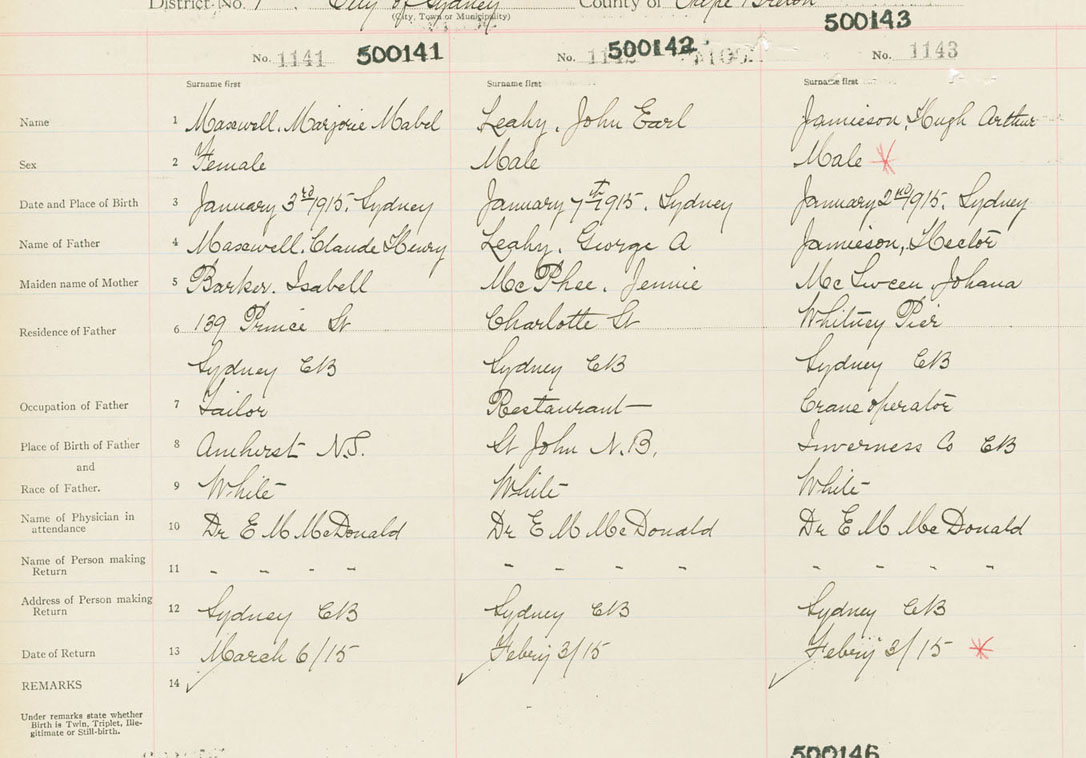 District No. 1. City of Sydney County of Cape Breton
(City, Town or Municipality)
500143
No. 1141 500141 No. 500142 No. 1143
Surname first Surname first Surname first
Name 1 Maxwell. Marjorie Mabel Leahy. John Earl Jamieson, Hugh Arthur
Sex 2 Female Male Male
Date and Place of Birth 3 January 3rd 1915. Sydney January 7th 1915. Sydney January 2nd 1915. Sydney
Name of Father 4 Maxwell. Claude Henry Leahy. George A Jamieson, Hector
Maiden name of Mother 5 Barker. Isabell McPhee. Jennie McSween, Johana
Residence of Father 6 139 Prince St Charlotte St Whitney Pier
Sydney CB Sydney CB Sydney CB
Occupation of Father 7 Tailor Restaurant Crane operator
Place of Birth of Father 8 Amherst N.S. St John N.B. Inverness Co CB
and
Race of Father. 9 White White White
Name of Physician in
attendance 10 Dr E M McDonald Dr E M McDonald Dr E M McDonald
Name of Person making
Return 11 - - - - - - - - - - - -
Address of Person making
Return 12 Sydney CB Sydney CB Sydney CB
Date of Return 13 March 6/15 Febry 3/15 Febry 3/15
REMARKS 14
Under remarks state whether
Birth is Twin, Triplet, Ille-
gitimate or Still-birth.
500146